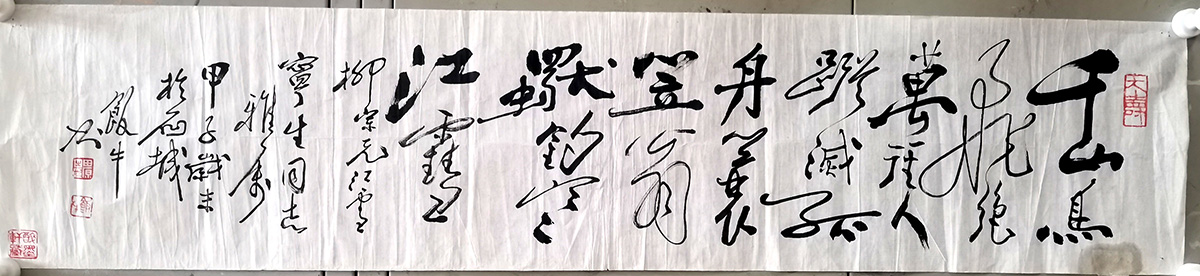 千山鳥
飛絕
萬徑人
蹤滅孤
舟蓑
笠翁
獨釣寒
江雪
柳宗元江雪
寧生同志
雅属
甲子歲末
於石城
飯牛
书